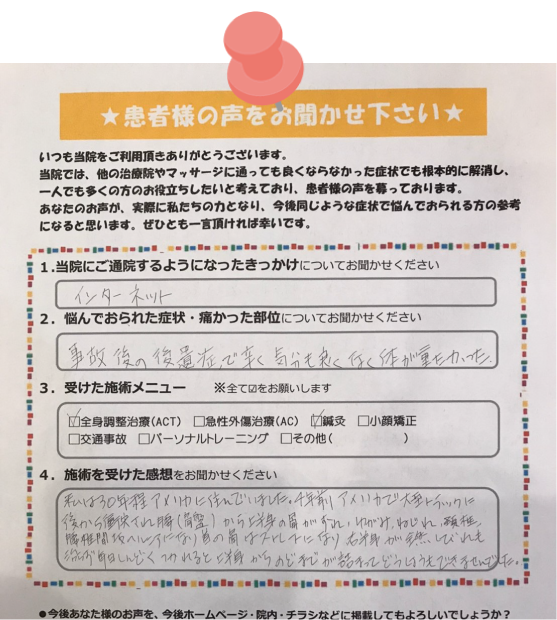 ★患者様の声をお聞かせ下さい★
いつも当院をご利用頂きありがとうございます。
当院では、他の治療院やマッサージに通っても良くならなかった症状でも根本的に解消し、
一人でも多くの方のお役立ちしたいと考えており、患者様の声を募っております。
あなたのお声が、実際に私たちの力となり、今後同じような症状で悩んでおられる方の参考
になると思います。ぜひとも一言頂ければ幸いです。
1.当院にご通院するようになったきっかけについてお聞かせください
インターネット
2. 悩んでおられた症状・痛かった部位についてお聞かせください
事故後の後遺症で辛く気分も良くなく体が重たかった。
3. 受けた施術メニュー ※全て☑をお願いします
☑全身調整治療(ACT) □急性外傷治療(AC) ☑鍼灸 □小顔矯正
□交通事故 □パーソナルトレーニング □その他( )
4. 施術を受けた感想をお聞かせください
私は30年程アメリカに住んでいました。 年前アメリカで大型トラックに
後から衝突され から上半身の骨がずれ、ゆがみ、ねじれ、頚椎、
椎間板ヘルニアになり首の骨はストレートになり右半身が
毎日しんどく つかれると上半身からのどまでが詰まってどうしようもできませんでした。
●今後あなた様のお声を、今後ホームページ・院内・チラシなどに掲載してもよろしいでしょうか？